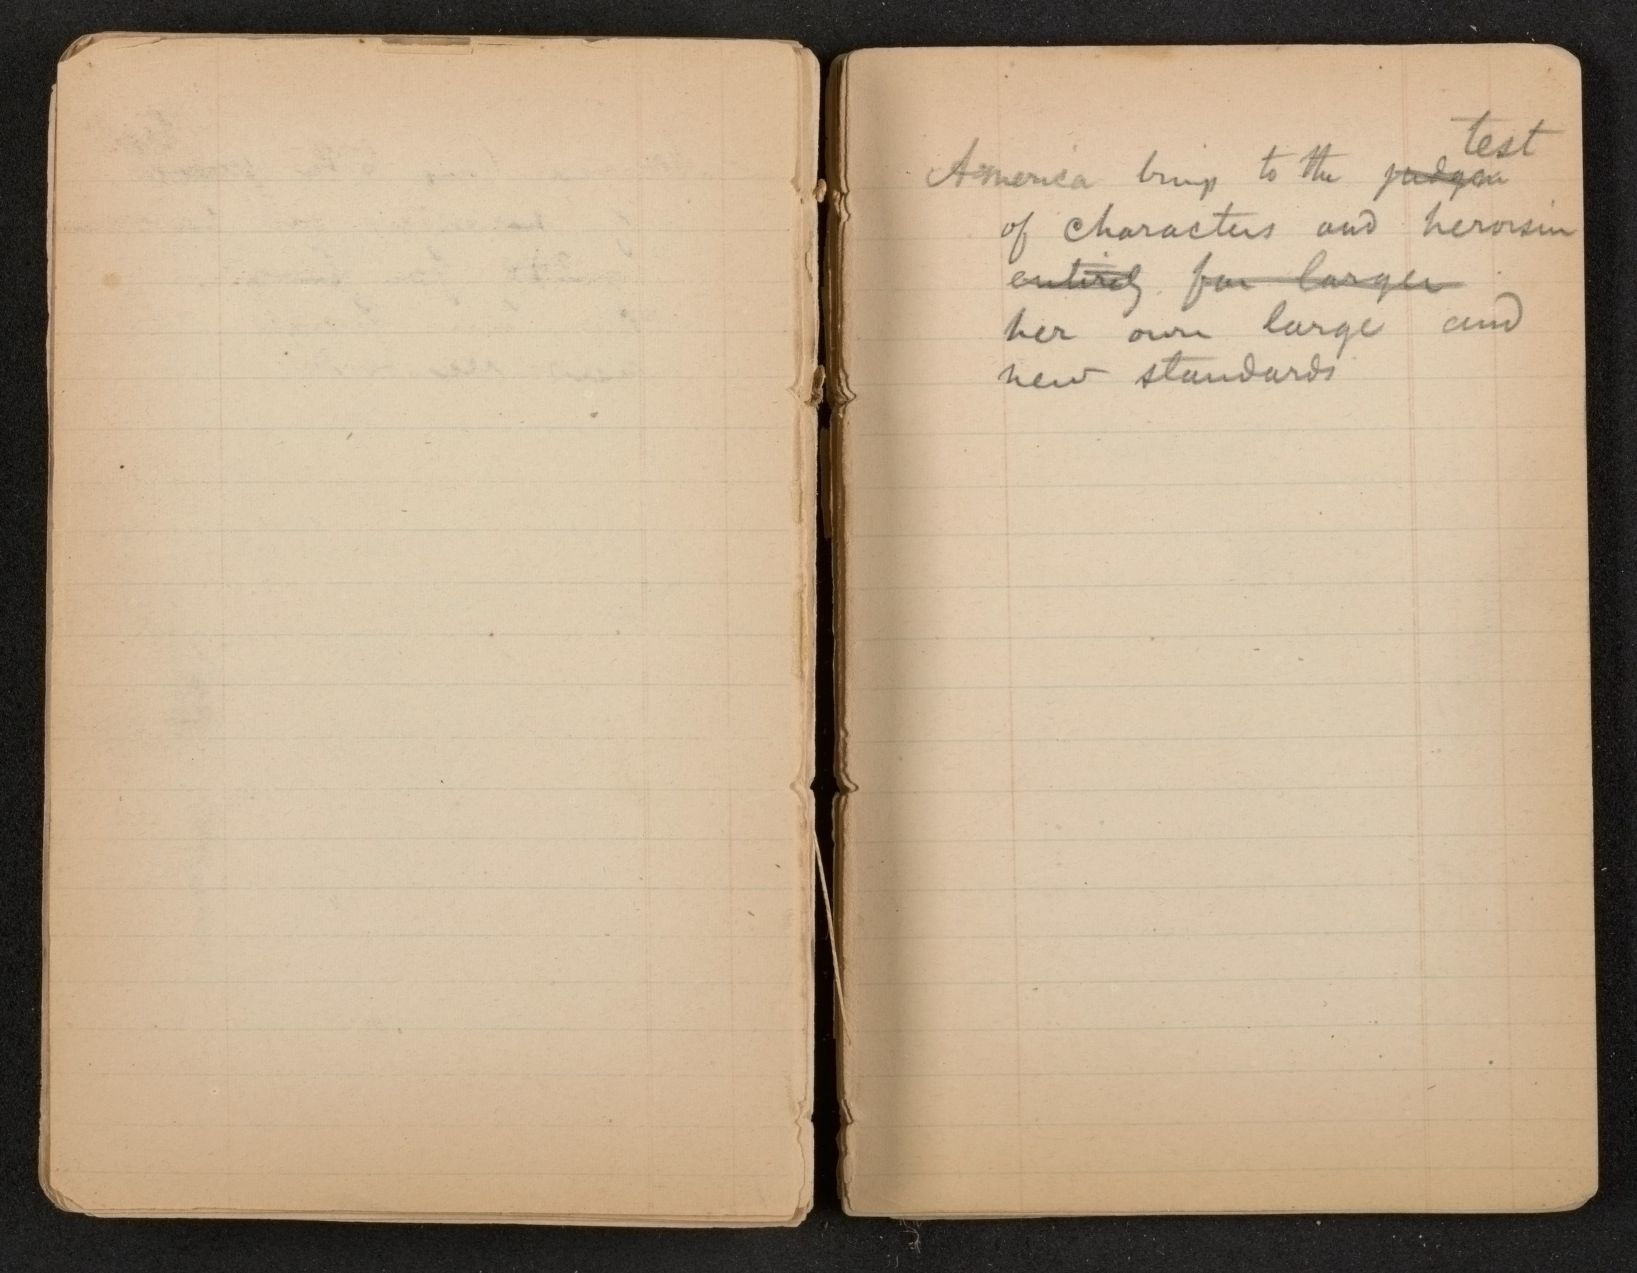 test
America brings to the judgm
of characters and heroism
entirely far larger
her own large and
new standards